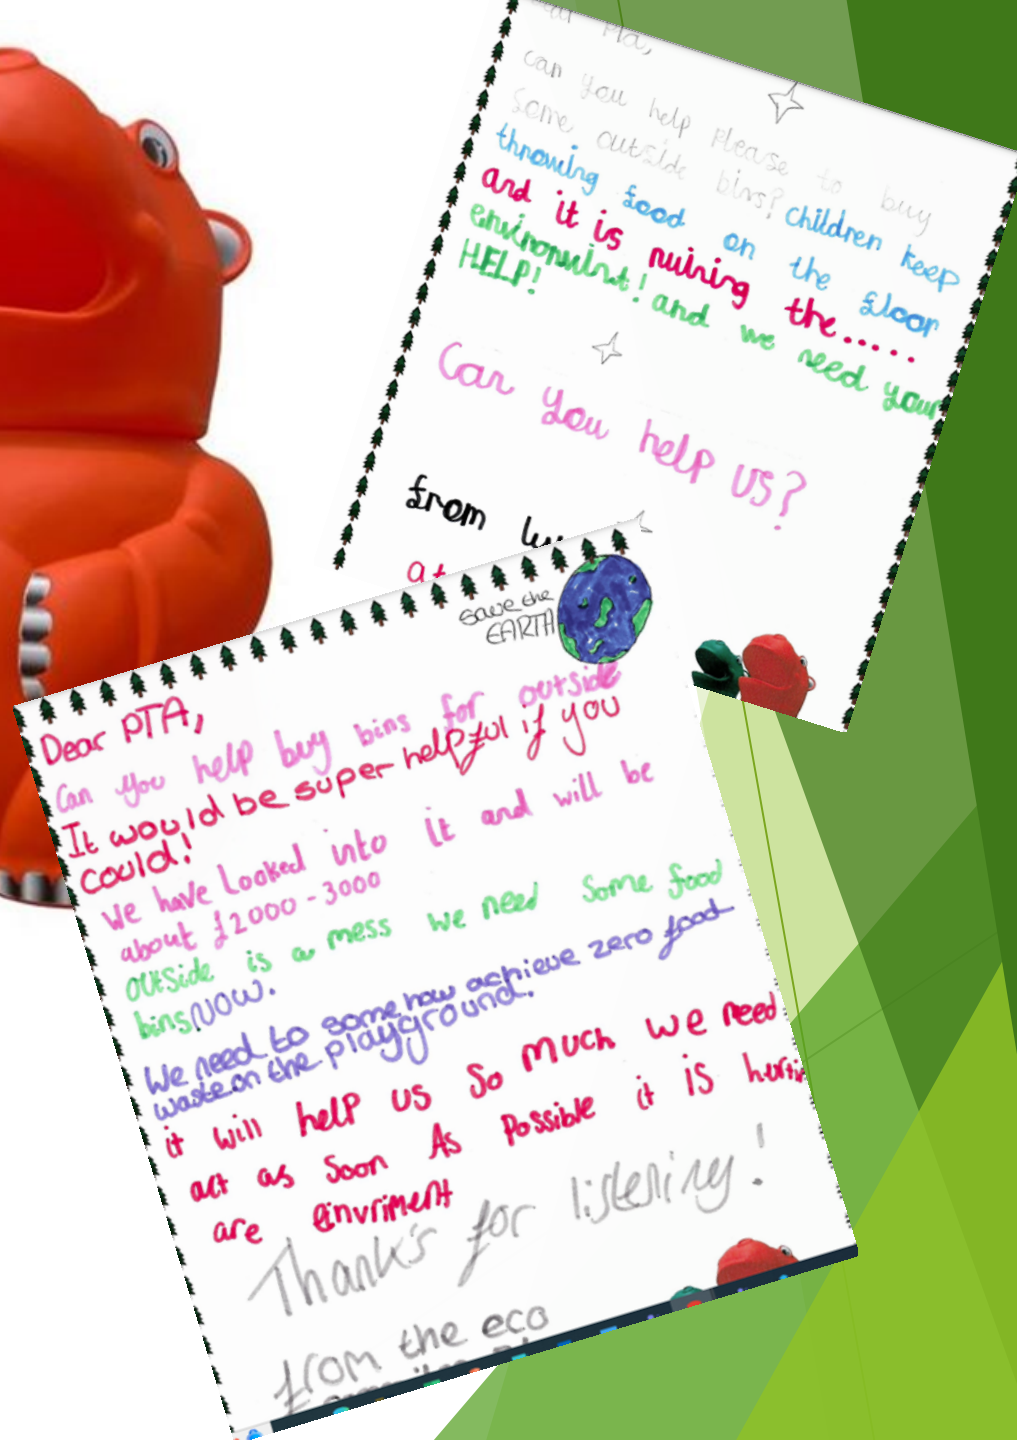 Dear Pta,
can you help please to buy
some outside bins? children keep
throwing food on the floor
and it is ruining the.....
and we need your
HELP!
Can you help US?
from
at
save the
EARTH
Dear PTA,
Can you help buy bins for outside
It would be super helpful if you
could!
We have Looked into it and will be
about £2000-3000
outside is a mess we need some food
bins NOW.
We need to some how achieve zero food
waste on the playground.
it will help us so much we need
act as soon As possible it is
are einvriment
Thank's for listening!
from the eco